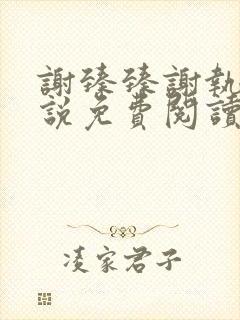 謝臻臻謝執
說免費閱讀
凌家君子